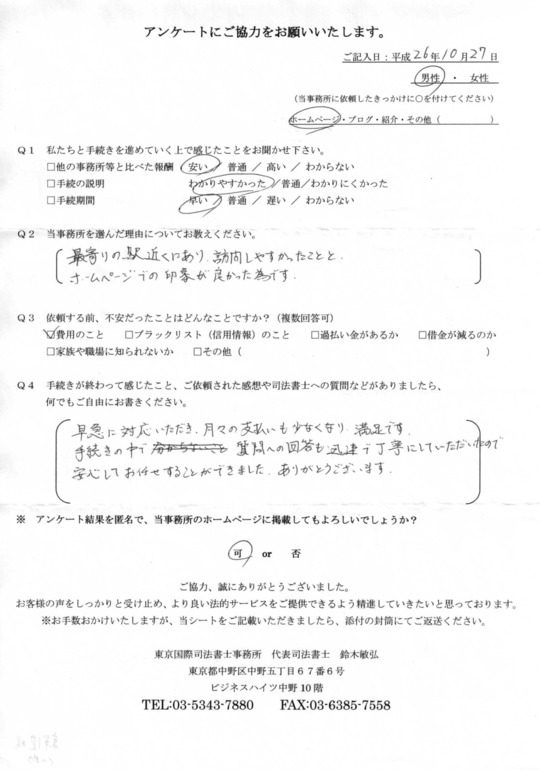 アンケートにご協力をお願いいたします。
ご記入日：平成26年10月27日
男性 ・ 女性
（当事務所に依頼したきっかけに○を付けてください）
ホームページ・ブログ・紹介・その他（　　　　　）
Q1 私たちと手続きを進めていく上で感じたことをお聞かせ下さい。
□他の事務所等と比べた報酬 安い ／ 普通 ／ 高い ／ わからない
□手続の説明 わかりやすかった ／普通／わかりにくかった
□手続期間 早い ／ 普通 ／ 遅い ／ わからない
Q2 当事務所を選んだ理由についてお教えください。
最寄りの駅近くにあり、訪問しやすかったことと、
ホームページでの印象が良かった為です。
Q3 依頼する前、不安だったことはどんなことですか？（複数回答可）
☑費用のこと □ブラックリスト（信用情報）のこと □過払い金があるか □借金が減るのか
□家族や職場に知られないか □その他（　　　　　）
Q4 手続きが終わって感じたこと、ご依頼された感想や司法書士への質問などがありましたら、
何でもご自由にお書きください。
早急に対応いただき、月々の支払いも少なくなり、満足です。
手続きの中で 分からないこと 質問への回答も迅速で丁寧にしていただいたので
安心してお任せすることができました。ありがとうございます。
※ アンケート結果を匿名で、当事務所のホームページに掲載してもよろしいでしょうか？
可 or 否
ご協力、誠にありがとうございました。
お客様の声をしっかりと受け止め、より良い法的サービスをご提供できるよう精進していきたいと思っております。
※お手数おかけいたしますが、当シートをご記載いただきましたら、添付の封筒にてご返送ください。
東京国際司法書士事務所 代表司法書士 鈴木敏弘
東京都中野区中野五丁目６７番６号
ビジネスハイツ中野 10 階
TEL:03-5343-7880 FAX:03-6385-7558